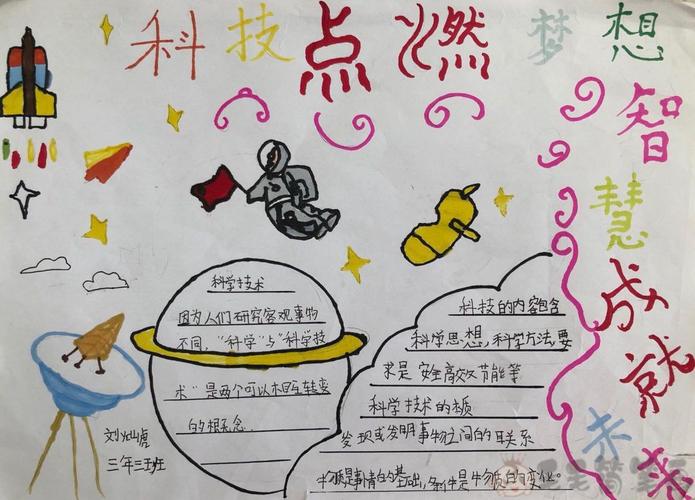 科技点燃梦想
智慧成就未来
科学技术
因为人们研究客观事物
不同，“科学”与“科学技
术”是两个可以相互转变
的概念
科技的内容包含
科学思想，科学方法，要
求是 安全高效节能等
科学技术的本质
发现或发明事物之间的联系
物质是事情的基础，条件是物质的变化。
刘灿虎
三年三班